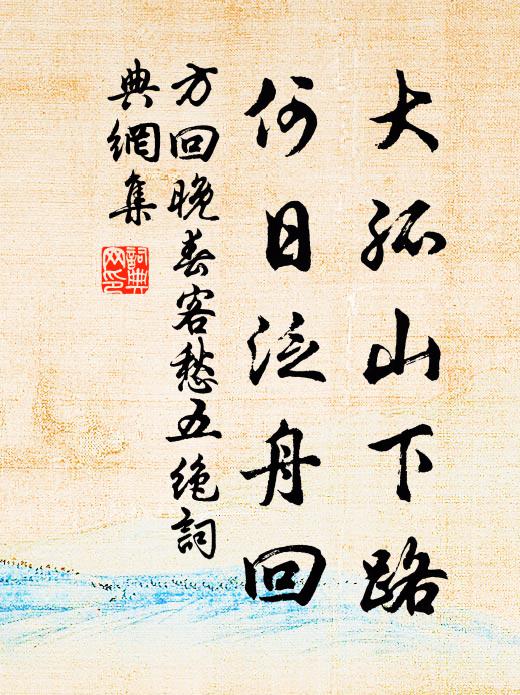 大孤山下路
何日泛舟回
方回晚春客愁五绝詞
典網集
詞典
网印